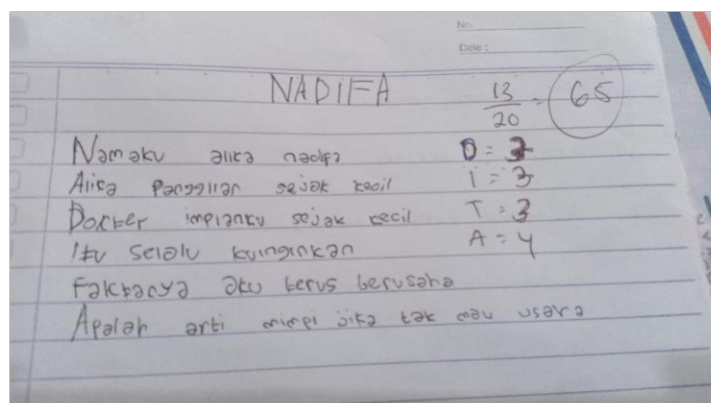 No.
Date :
NADIFA
13/20 = 65
Namaku alika nadifa
D = 3
Alika Panggilan sejak kecil
i = 3
Dokter impianku sejak kecil
T = 3
Itu selalu kuinginkan
A = 4
Faktanya aku terus berusaha
Apalah arti mimpi jika tak mau usaha